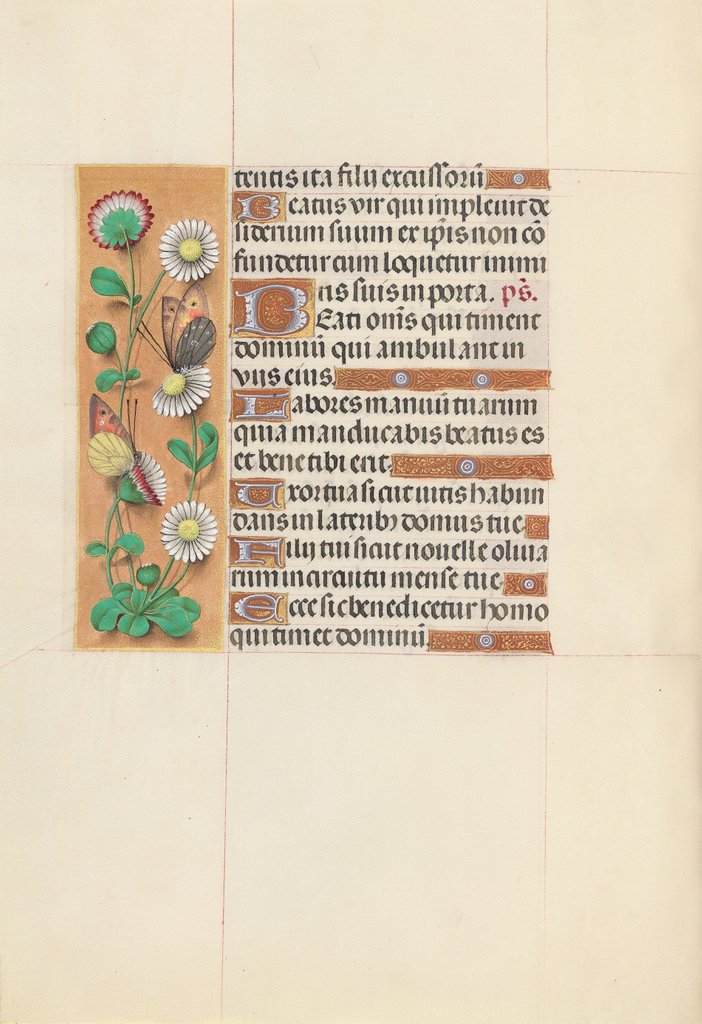 tentis ita filij excussorū
Beatus vir qui impleuit de
siderium suum ex ip̄is non cō
fundetur cum loquetur inimi
cis suis in porta. ps̄.
BEati om̄s qui timent
dominū qui ambulant in
vijs eius.
Labores manuū tuarum
quia manducabis beatus es
et bene tibi erit.
Uxor tua sicut uitis habun
dans in laterib⁊ domus tue.
Filij tui sicut nouelle oliua
rum in circuitu mense tue.
Ecce sic benedicetur homo
qui timet dominū.